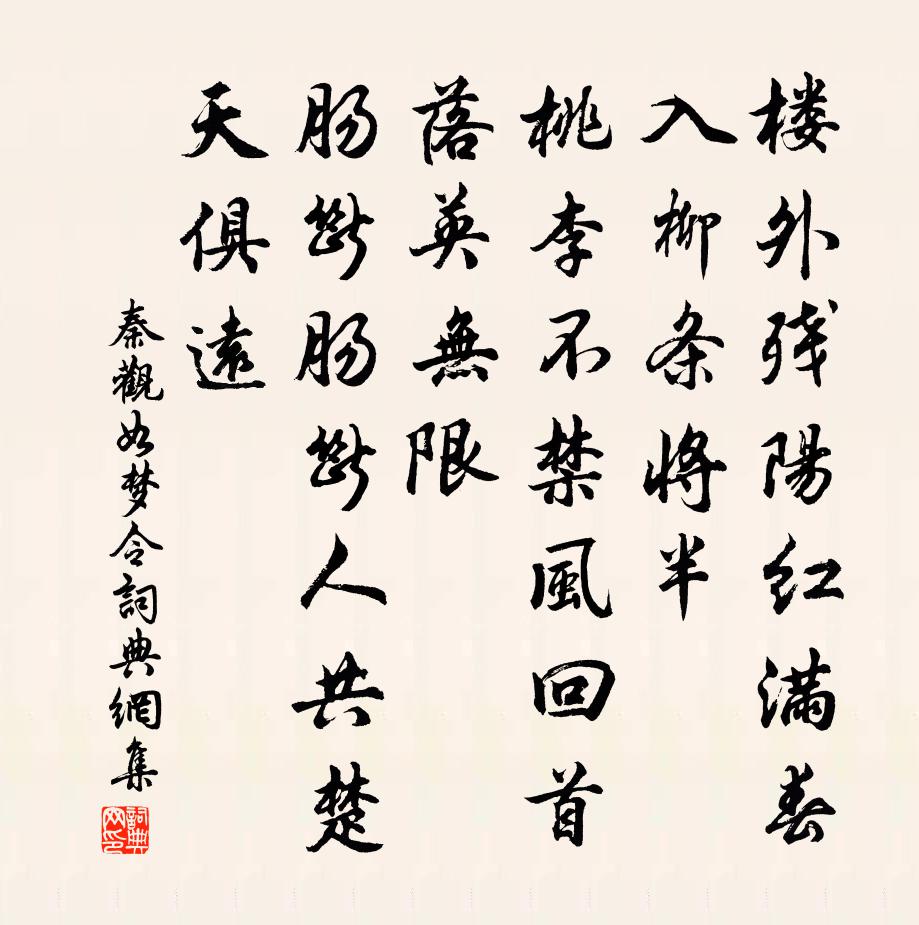 楼外残陽红满春
入柳条将半
桃李不禁風回首
落英無限
肠斷肠斷人共楚
天俱遠
秦觀如梦令詞典網集
詞典網印